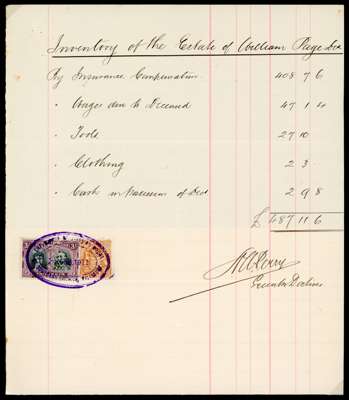 Inventory of the Estate of William Page Decd
By Insurance Compensation 408 7 6
" Wages due to Deceased 47 1 4
" Tools 27 10
" Clothing 2 3
" Cash in Possession of Decd 2 9 8
£ 487 11 6
Perry
Executor Dative